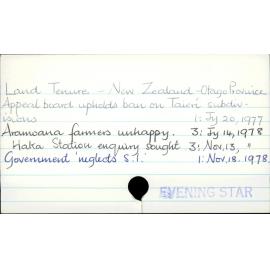 Land Tenure - New Zealand - Otago Province
Appeal board upholds ban on Taieri subdiv-
isions 1: Jy 20, 1977
Aramoana farmers unhappy. 3: Jy 14, 1978
Haka Station enquiry sought 3: Nov. 13, "
Government 'neglects S.I.' 1: Nov. 18. 1978.
EVENING STAR